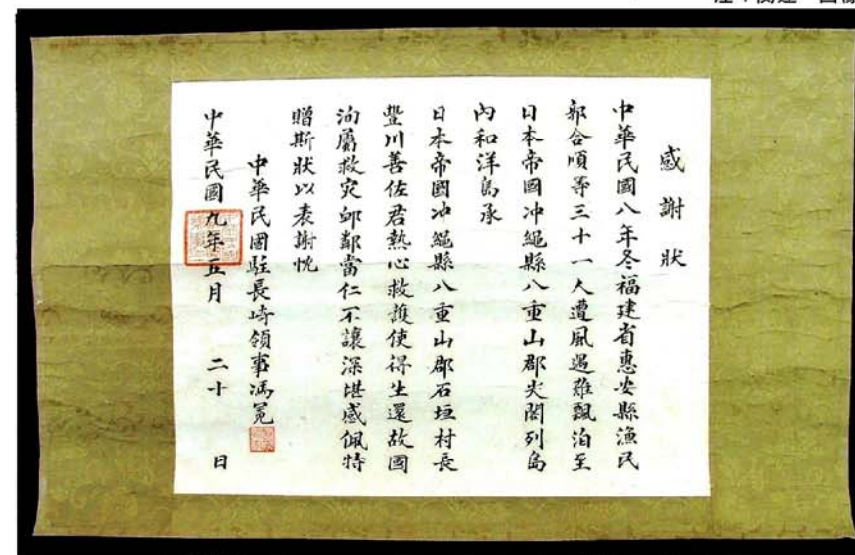 感謝狀
中華民國八年冬福建省惠安縣漁民
郭合順等三十一人遭風遇難飄泊至
日本帝國冲繩縣八重山郡尖閣列島
內和洋島承
日本帝國冲繩縣八重山郡石垣村長
豐川善佐君熱心救護使得生還故國
洵屬救灾卹鄰當仁不讓深堪感佩特
贈斯狀以表謝忱
中華民國駐長崎領事馮冕
中華民國九年五月 二十 日